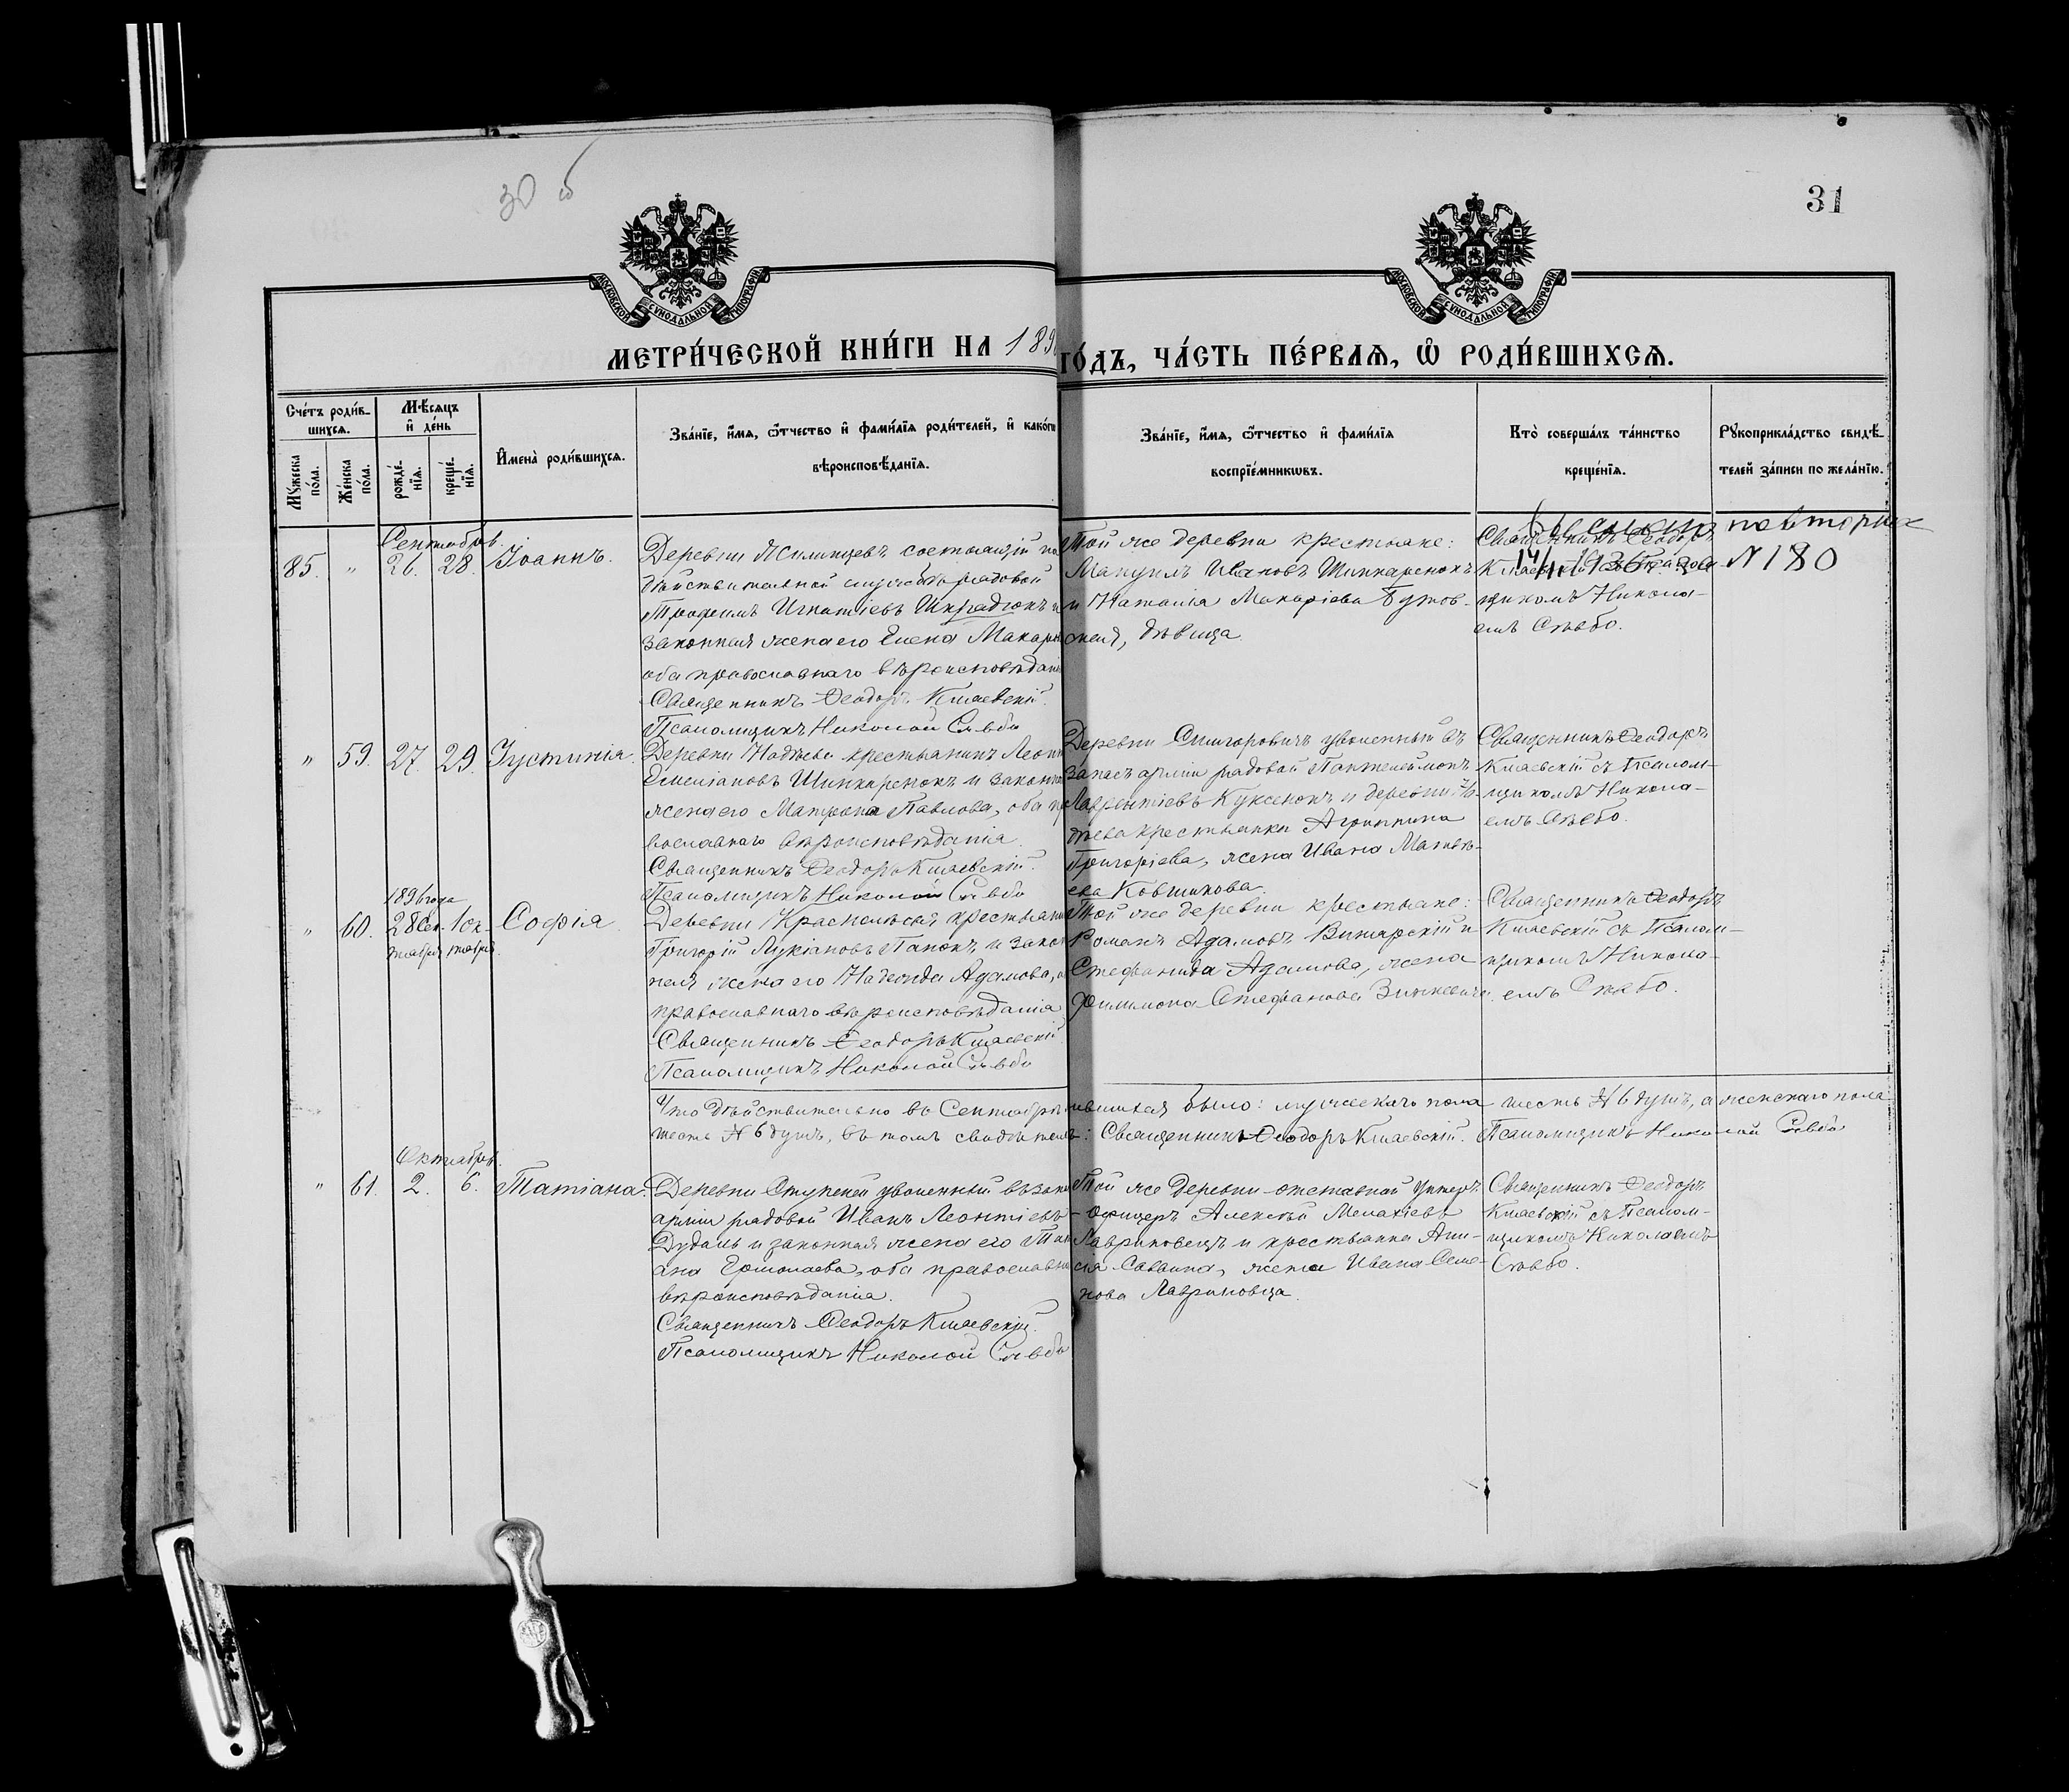 30 об
31
МОСКОВСКОЙ СѴНОДАЛЬНОЙ ТИПОГРАФІИ
МОСКОВСКОЙ СѴНОДАЛЬНОЙ ТИПОГРАФІИ
МЕТРИ́ЧЕСКОЙ КНИ́ГИ НА 189
ГО́ДЪ, ЧА́СТЬ ПЕ́РВАѦ, Ѡ РОДИ́ВШИХСѦ.
Сче́тъ роди́в-
шихсѧ.
Мꙋ́жеска по́ла.
Же́нска по́ла.
Мѣ́сѧцъ
и де́нь
рожде́-
нїѧ.
креще́-
нїѧ.
Имена̀ роди́вшихсѧ.
Зва́нїе, и́мѧ, ѻ́тчество и фами́лїѧ роди́телей, и како́гѡ
вѣроисповѣ́данїѧ.
Зва́нїе, и́мѧ, ѻ́тчество и фами́лїѧ
воспрїе́мникѡвъ.
Кто̀ соверша́лъ та́инство
креще́нїѧ.
Рꙋкоприкла́дство свидѣ́-
телей за́писи по жела́нїю.
Сентябрь.
85. " 26. 28. Іоаннъ.
Деревни состоящій на
дѣйствительной службѣ рядовой
Трофимъ Игнатіевъ Шкрадюкъ и
законная жена его Елена Макарі
оба православнаго вѣроисповѣданія
Священникъ Ѳеодоръ Кмаевскій.
Псаломщикъ Николай Сѣвбо
Той же деревни крестьяне:
Мануилъ Ивановъ Шинкаренокъ
и Наталія Макаріева Бутов-
ская, дѣвица.
Священникъ Ѳеодоръ
Кмаевскій съ Псалом-
щикомъ Никола-
емъ Сѣвбо.
повторное
14/II 1936 г. за N 180
" 59. 27. 29. Іустинія.
Деревни Надѣева крестьянинъ Леонт
Емеліановъ Шинкаренокъ и законная
жена его Матрона Павлова, оба пра
вославнаго вѣроисповѣданія.
Священникъ Ѳеодоръ Кмаевскій.
Псаломщикъ Николай Сѣвбо
Деревни Снигоровичъ уволенный въ
запасъ арміи рядовой Пантелеймонъ
Лаврентіевъ Куксенокъ и деревни На-
дѣева крестьянка Агриппина
Григоріева, жена Ивана Матвѣ-
ева Ковшикова.
Священникъ Ѳеодоръ
Кмаевскій съ Псалом-
щикомъ Никола-
емъ Сѣвбо.
1896 года
" 60. 28 Сен- 1 Ок- Софія.
тября тября
Деревни Краснолѣсья крестьянинъ
Григорій Лукіановъ Папокъ и закон
ная жена его Надежда Адамова, о
православнаго вѣроисповѣданія
Священникъ Ѳеодоръ Кмаевскій
Псаломщикъ Николай Сѣвбо
Той же деревни крестьяне:
Романъ Адамовъ Витарскій и
Стефанида Адамова, жена
Филимона Стефанова Зинкевича.
Священникъ Ѳеодоръ
Кмаевскій съ Псалом-
щикомъ Никола-
емъ Сѣвбо.
Что дѣйствительно въ Сентябрѣ ившихся было: мужескаго пола шесть N 6 душъ, а женскаго пола
шесть N 6 душъ, въ томъ свидѣтельс: Священникъ Ѳеодоръ Кмаевскій. Псаломщикъ Николай Сѣвбо
Октябрь.
" 61. 2. 6. Татіана.
Деревни Ступеней уволенный въ запа
арміи рядовой Иванъ Леонтіевъ
Дудаль и законная жена его Тат
ана Ермолаева, оба православна
вѣроисповѣданія.
Священникъ Ѳеодоръ Кмаевскій.
Псаломщикъ Николай Сѣвбо
Той же деревни отставной унтеръ-
офицеръ Алексѣй Малахіевъ
Лавриновецъ и крестьянка Ани-
сія Саввина, жена Ивана Семе-
нова Лавриновца.
Священникъ Ѳеодоръ
Кмаевскій съ Псалом-
щикомъ Николаемъ
Сѣвбо.